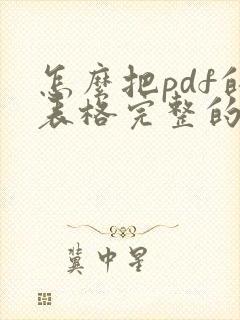 怎麽把pdf的
表格完整的
冀中星